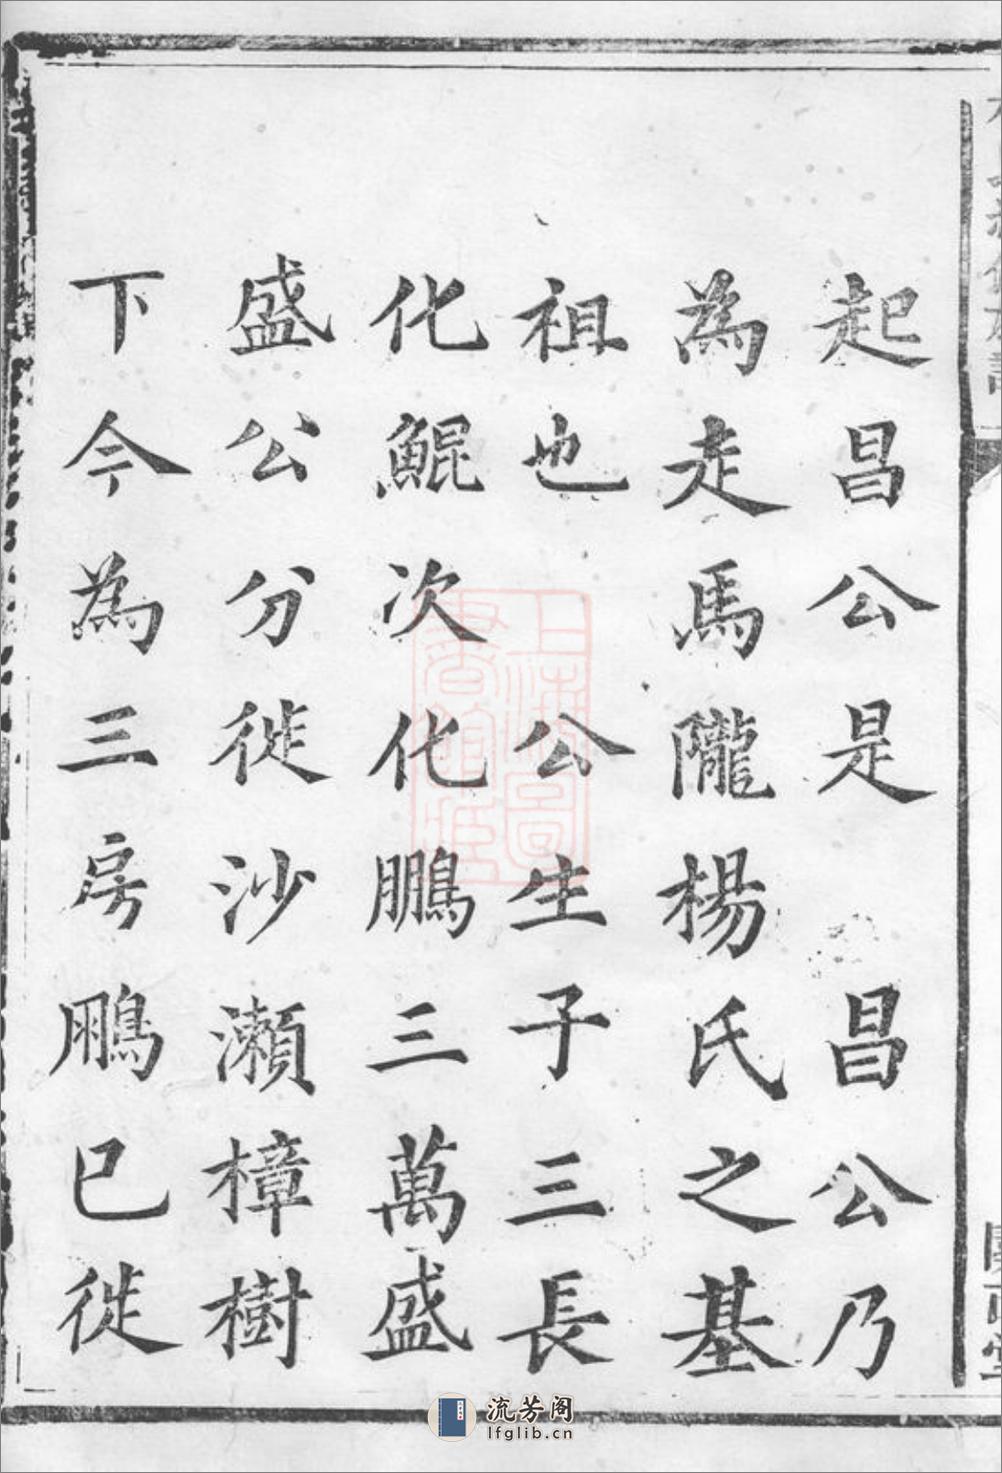 起昌公是　昌公乃
為走馬隴楊氏之基
祖也　公生子三長
化鯤次化鵬三萬盛
盛公分徙沙瀨樟樹
下今為三房鵬已徙
上海圖書館藏
流芳阁
lfglib.cn